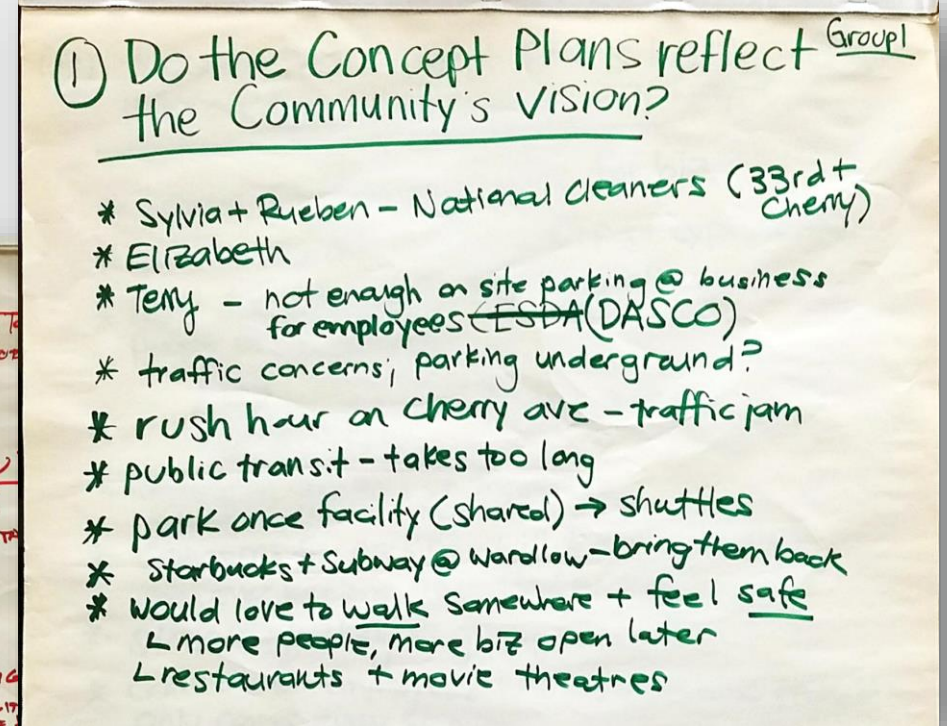 ① Do the Concept Plans reflect Group 1
the Community's Vision?
* Sylvia + Rueben – National Cleaners (33rd +
Cherry)
* Elizabeth
* Terry – not enough on site parking @ business
for employees (ESDA (DASCO)
* traffic concerns; parking underground?
* rush hour on Cherry ave – traffic jam
* public transit – takes too long
* park once facility (shared) → shuttles
* Starbucks + Subway @ Wardlow – bring them back
* would love to walk somewhere + feel safe
↳ more people, more biz open later
↳ restaurants + movie theatres